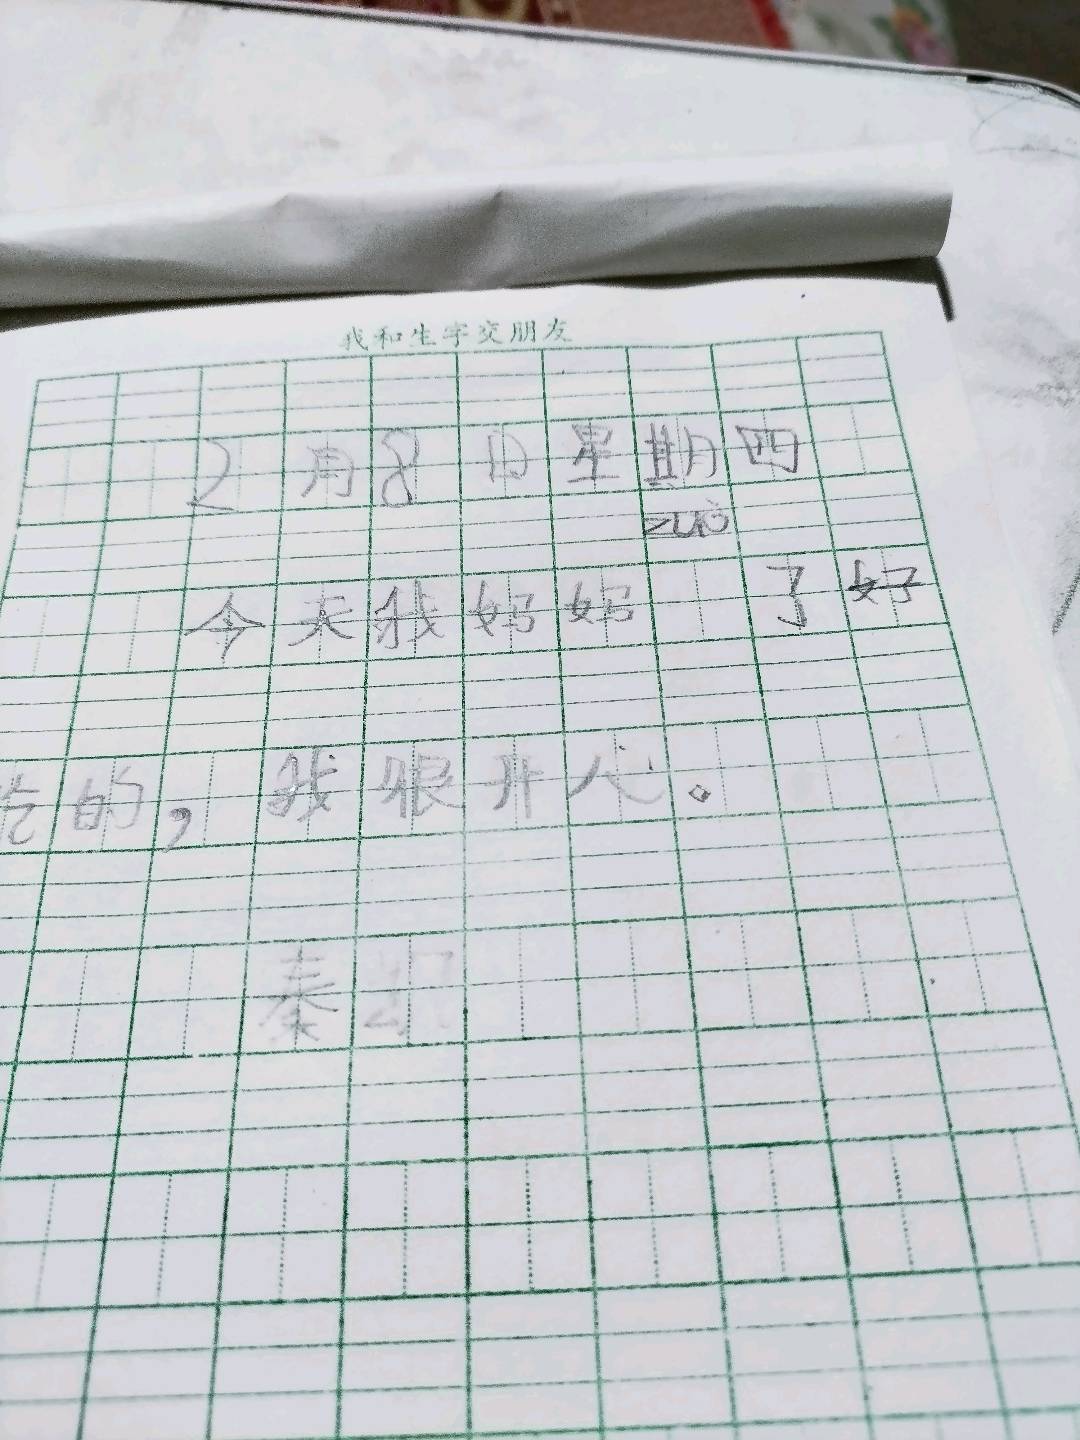 我和生字交朋友
2月8日星期四
zuò
今天我妈妈 了好
吃的，我很开心。
秦